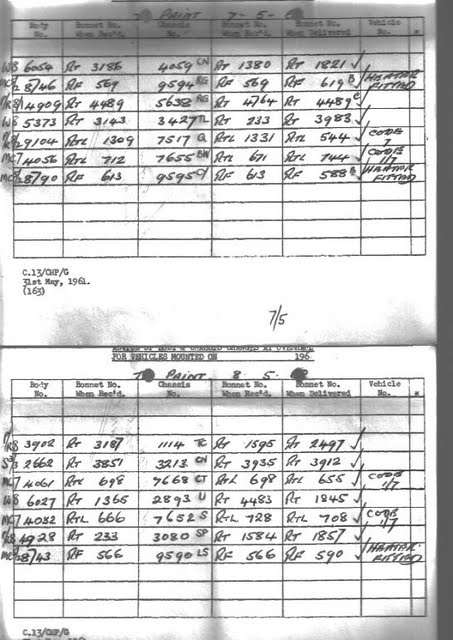 PAINT 7-5-
Body No. Bonnet No. When Rec'd. Chassis No. Bonnet No. When Delivered Vehicle No. *
W8 6054 RT 3186 4059 CN RT 1380 RT 1821 ✓
8/46 RF 569 9594 RG RF 569 RF 619 B ✓ HEATER FITTED
14909 RT 4489 5638 RG RT 4764 RT 4489 C ✓
W8 5373 RT 3143 3427 TL RT 233 RT 3983 ✓
9104 RTL 1309 7517 Q RTL 1331 RTL 544 ✓ CODE 7
MC7 4056 RTL 712 7655 BN RTL 671 RTL 744 ✓ CODE 1/7
8/90 RF 613 9595 RF 613 RF 588 B ✓ HEATER FITTED
C.13/CHP/G
31st May, 1961.
(163)
7/5
FOR VEHICLES MOUNTED ON 196
PAINT 8-5-
Body No. Bonnet No. When Rec'd. Chassis No. Bonnet No. When Delivered Vehicle No. *
3902 RT 3187 1114 TC RT 1595 RT 2497 ✓
2662 RT 3851 3213 CN RT 3935 RT 3912 ✓
MC7 4061 RTL 698 7668 CT RTL 698 RTL 655 ✓ CODE 1/7
W8 6027 RT 1365 2893 U RT 4483 RT 1845 ✓
MC7 4032 RTL 666 7652 S RTL 728 RTL 708 ✓ CODE 1/7
4928 RT 233 3080 SP RT 1584 RT 1857 ✓
8/43 RF 566 9590 LS RF 566 RF 590 ✓ HEATER FITTED
C.13/CHP/G